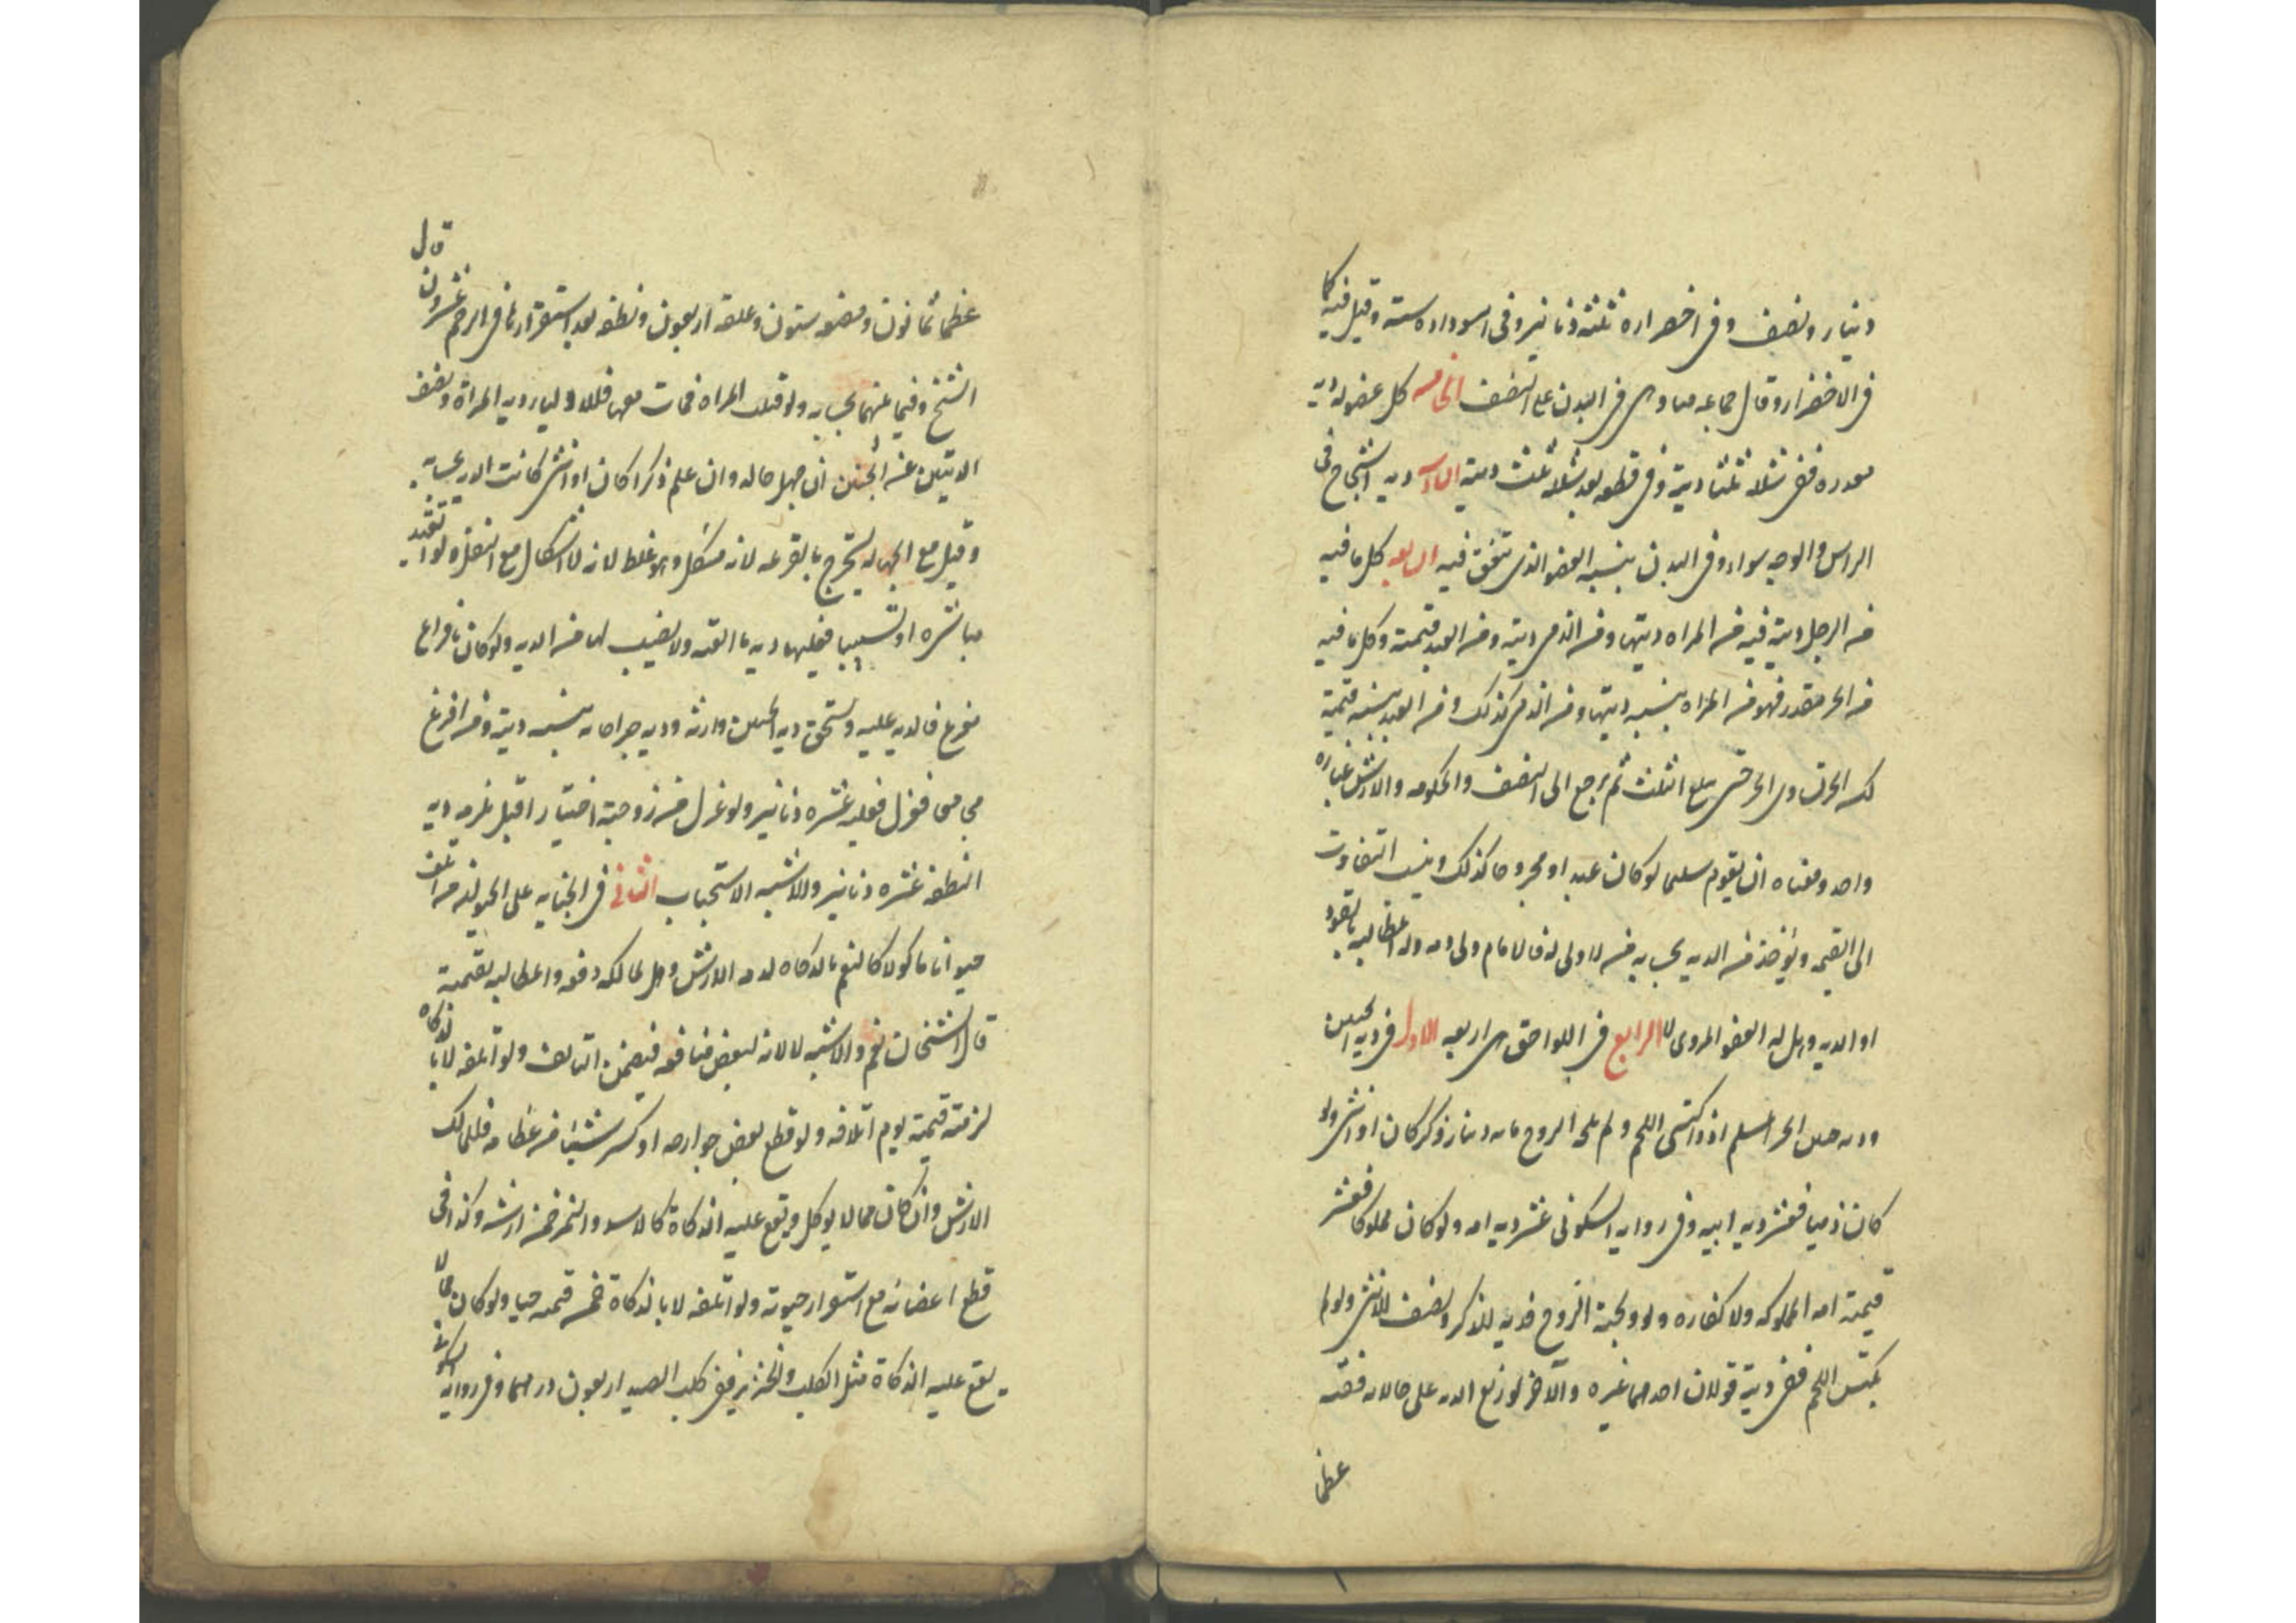 دينار ونصف وفي اخضراره ثلثه دنانير وفي اسوداده سته وقيل فيه كما
في الاخضرار وقال جماعه منا وهي في البدن علي النصف الخامسه كل عضو له ديه
مقدره ففي شلله ثلثا ديته وفي قطعه بعد شلله ثلث ديته السادسه ديه الشجاج في
الراس والوجه سواء وفي البدن بنسبه العضو الذي يتفق فيه السابعه كل ما فيه
من الرجل ديته فيه من المراه ديتها ومن الذمي ديته ومن العبد قيمته وكل ما فيه
من الحر مقدر فهو من المراه بنسبه ديتها ومن الذمي كذلك ومن العبد بنسبه قيمته
لكن الحره تساوي الحر حتى يبلغ الثلث ثم يرجع الى النصف والحكومه والارش عباره
واحد ومعناه ان يقوم سليما لو كان عبدا ومجروحا كذلك وينسب التفاوت
الى القيمه ويؤخذ من الديه بحسابه من لا ولي له فالامام ولي دمه وله المطالبه بالقود
او الديه وهل له العفو المروي لا الرابع في اللواحق وهي اربعه الاول في ديه الجنين
وديه جنين الحر المسلم اذا اكتسى اللحم ولم تلجه الروح مايه دينار ذكرا كان او انثى ولو
كان ذميا فعشر ديه ابيه وفي روايه السكوني عشر ديه امه ولو كان مملوكا فعشر
قيمته امه المملوكه ولا كفاره ولو ولجته الروح فديه للذكر ونصف للانثى ولو لم
يكتس اللحم ففي ديته قولان احدهما غره والآخر توزيع الديه على حالاته ففيه
عظما
عظما ثمانون ومضغه ستون وعلقه اربعون ونطفه بعد استقرارها في الرحم عشرون
قال
الشيخ وفيما بينهما بحسابه ولو قتلت المراه فمات معها فللاوليا ديه المراة ونصف
الديتين عن الجنين ان جهل حاله وان علم ذكرا كان او انثى كانت الديه بحسابه
وقيل مع الجهاله يستخرج بالقرعه لانه مشكل وهو غلط لانه لا اشكال مع النقل ولو القته
مباشره او تسبيبا فعليها ديه ما القته ولا نصيب لها من الديه ولو كان بافزاع
مفزع فالديه عليه ويستحق ديه الجنين وارثه وديه جراحاته بنسبه ديته ومن افزع
مجامعا فعزل فعليه عشره دنانير ولو عزل عن زوجته اختيارا قيل يلزمه ديه
النطفه عشره دنانير والاشبه الاستحباب الثاني في الجنايه على الحيوان من اتلف
حيوانا ماكولا كالنعم بالذكاه لزمه الارش وهل لمالكه دفعه والمطالبه بقيمته
قال الشيخان نعم والاشبه لا لانه لبعض منافعه فيضمن التالف ولو اتلفه لا بالذكاه
لزمته قيمته يوم اتلافه ولو قطع بعض جوارحه او كسر شيئا من عظامه فللمالك
الارش وان كان مما لا يوكل ويقع عليه الذكاة كالاسد والنمر ضمن ارشه وكذا في
قطع اعضائه مع استقرار حيوته ولو اتلفه لا بالذكاة ضمن قيمته حيا ولو كان مما لا
يقع عليه الذكاة مثل الكلب والخنزير ففي كلب الصيد اربعون درهما وفي روايه السكوني